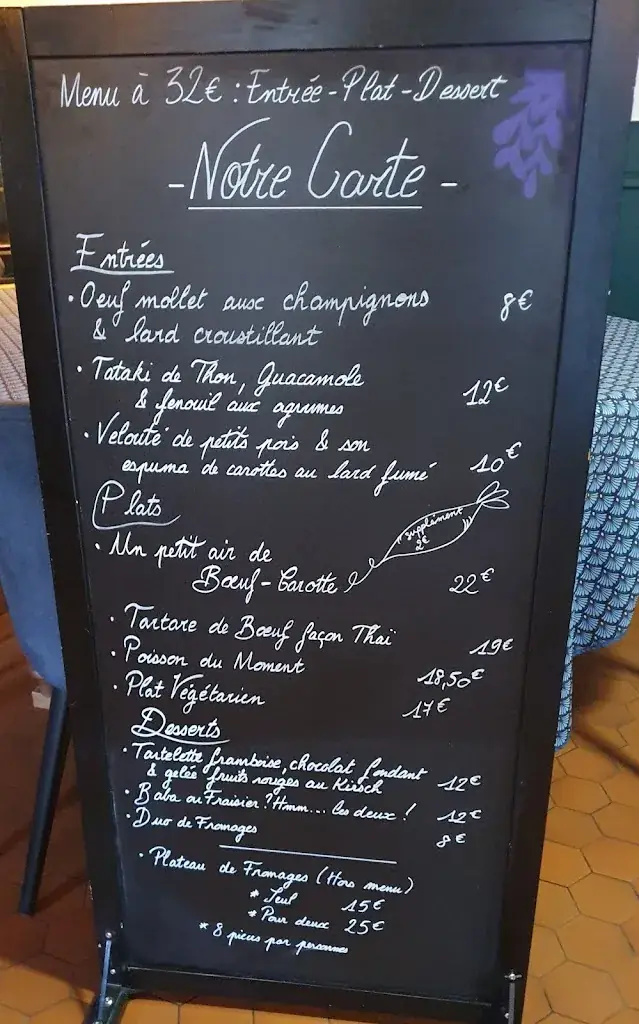 Menu à 32€ : Entrée - Plat - Dessert
- Notre Carte -
Entrées
• Oeuf mollet aux champignons 8€
& lard croustillant
• Tataki de Thon, Guacamole
& fenouil aux agrumes 12€
• Velouté de petits pois & son
espuma de carottes au lard fumé 10€
Plats
supplément
2€
• Un petit air de
Bœuf-Carotte 22€
• Tartare de Bœuf façon Thaï 19€
• Poisson du Moment 18,50€
• Plat Végétarien 17€
Desserts
• Tartelette framboise, chocolat fondant
& gelée fruits rouges au Kirsch 12€
• Baba ou Fraisier ? Hmm... les deux ! 12€
• Duo de Fromages 8€
• Plateau de Fromages (Hors menu)
* Seul 15€
* Pour deux 25€
* 8 pièces par personnes